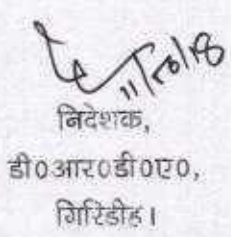 11/10/18
निदेशक,
डी०आर०डी०ए०,
गिरिडीह।